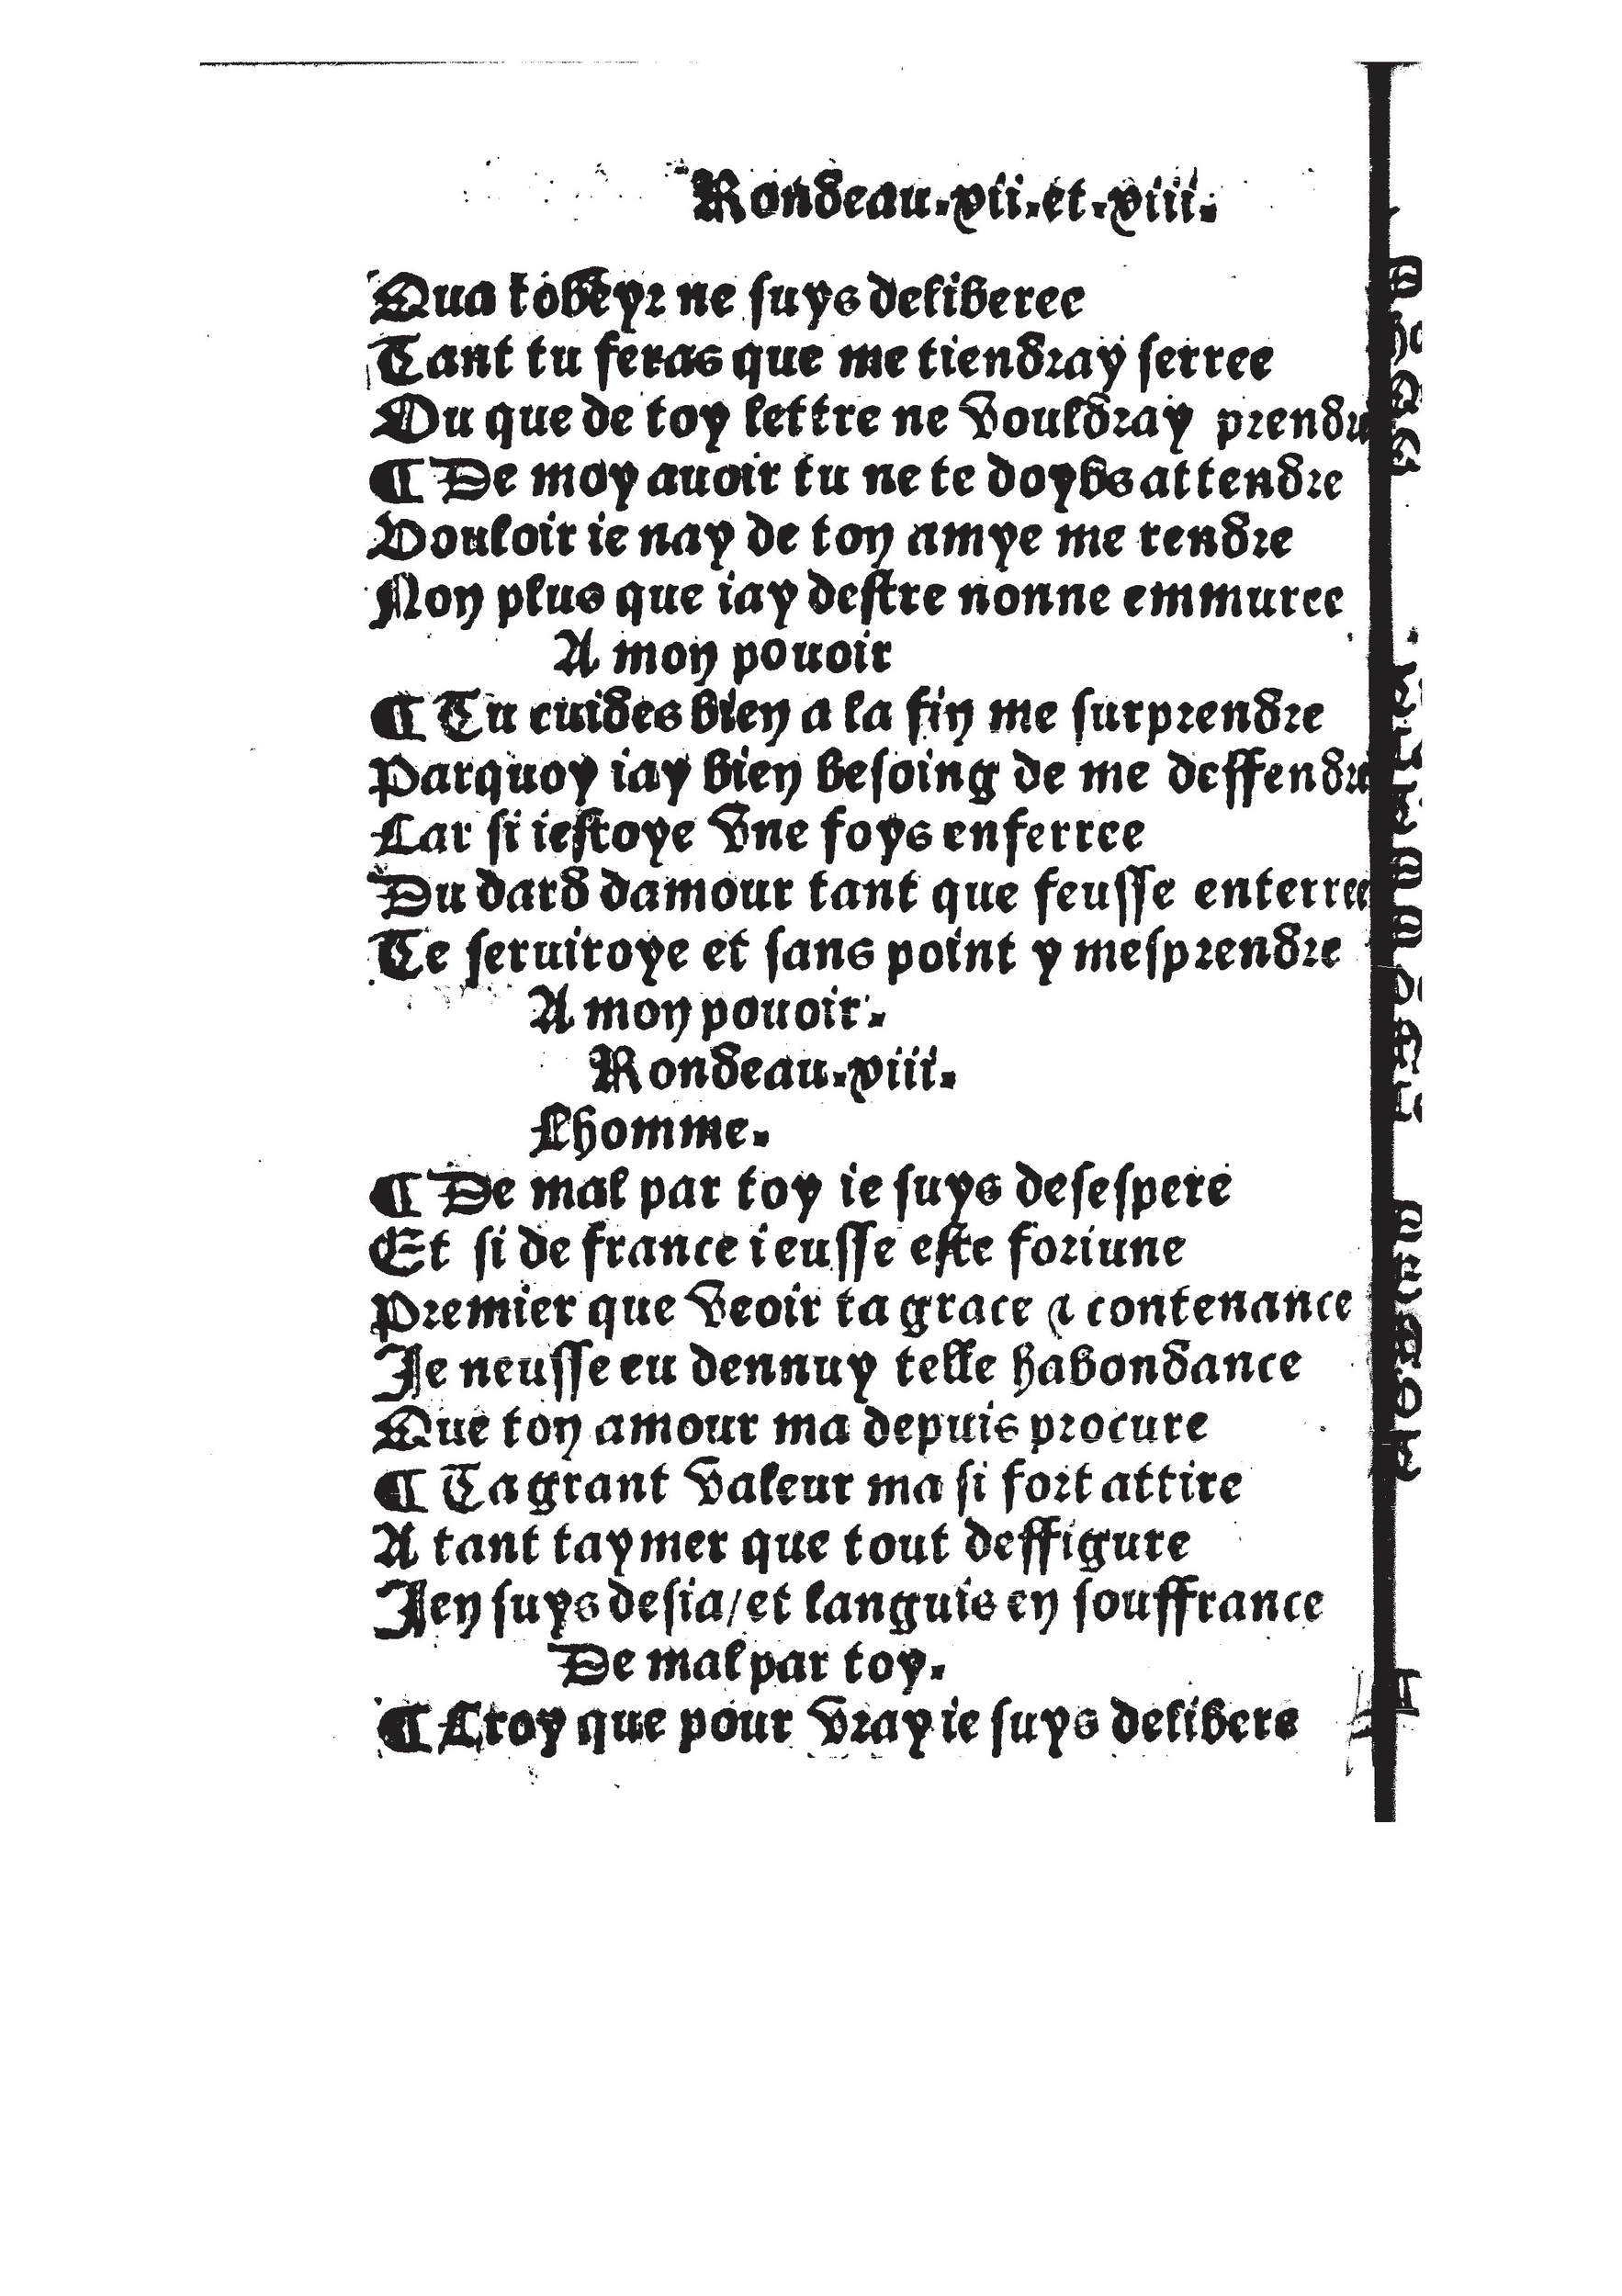 Rondeau.vii.et.viii.
Qua tobeyr ne suys deliberee
Tant tu feras que me tiendray serree
Ou que de toy lettre ne vouldray prendre
¶ De moy auoir tu ne te doybs attendre
Vouloir ie nay de ton amye me rendre
Non plus que iay destre nonne emmuree
A mon pouoir
¶ Tu cuides bien a la fin me surprendre
Parquoy iay bien besoing de me deffendre
Car si iestoye vne foys enferree
Du dard damour tant que feusse enterree
Te seruiroye et sans point y mesprendre
A mon pouoir.
Rondeau.viii.
Lhomme.
¶ De mal par toy ie suys desespere
Et si de france ieusse este foriune
Premier que veoir ta grace ⁊ contenance
Je neusse eu dennuy telle habondance
Que ton amour ma depuis procure
¶ Ta grant valeur ma si fort attire
A tant taymer que tout deffigure
Jen suys desia/et languis en souffrance
De mal par toy.
¶ Croy que pour vray ie suys delibere